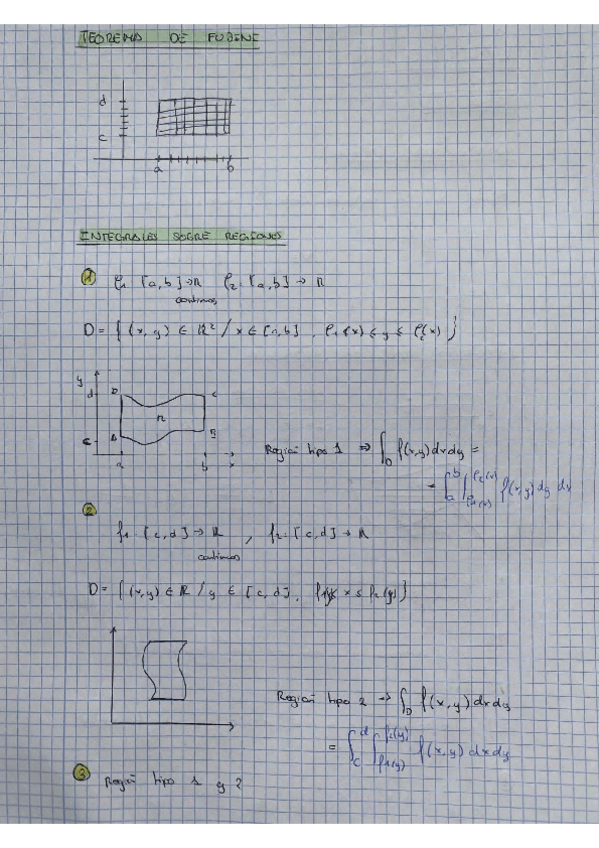 TEOREMA DE FUBINI
d
c
a b
INTEGRALES SOBRE REGIONES
1 φ₁: [a,b]→ℝ φ₂: [a,b]→ℝ
continuas
D = { (x, y) ∈ ℝ² / x ∈ [a,b], φ₁(x) ≤ y ≤ φ₂(x) }
y
d D C
R
c A B
a b x
Región tipo 1 ⇒ ∫_D f(x,y) dx dy =
= ∫_a^b ∫_{φ₁(x)}^{φ₂(x)} f(x,y) dy dx
2
f₁: [c,d] → ℝ , f₂: [c,d] → ℝ
continuas
D = { (x,y) ∈ ℝ / y ∈ [c,d], f₁(y) ≤ x ≤ f₂(y) }
Región tipo 2 → ∫_D f(x,y) dx dy
= ∫_c^d ∫_{f₁(y)}^{f₂(y)} f(x,y) dx dy
3 Región tipo 1 y 2